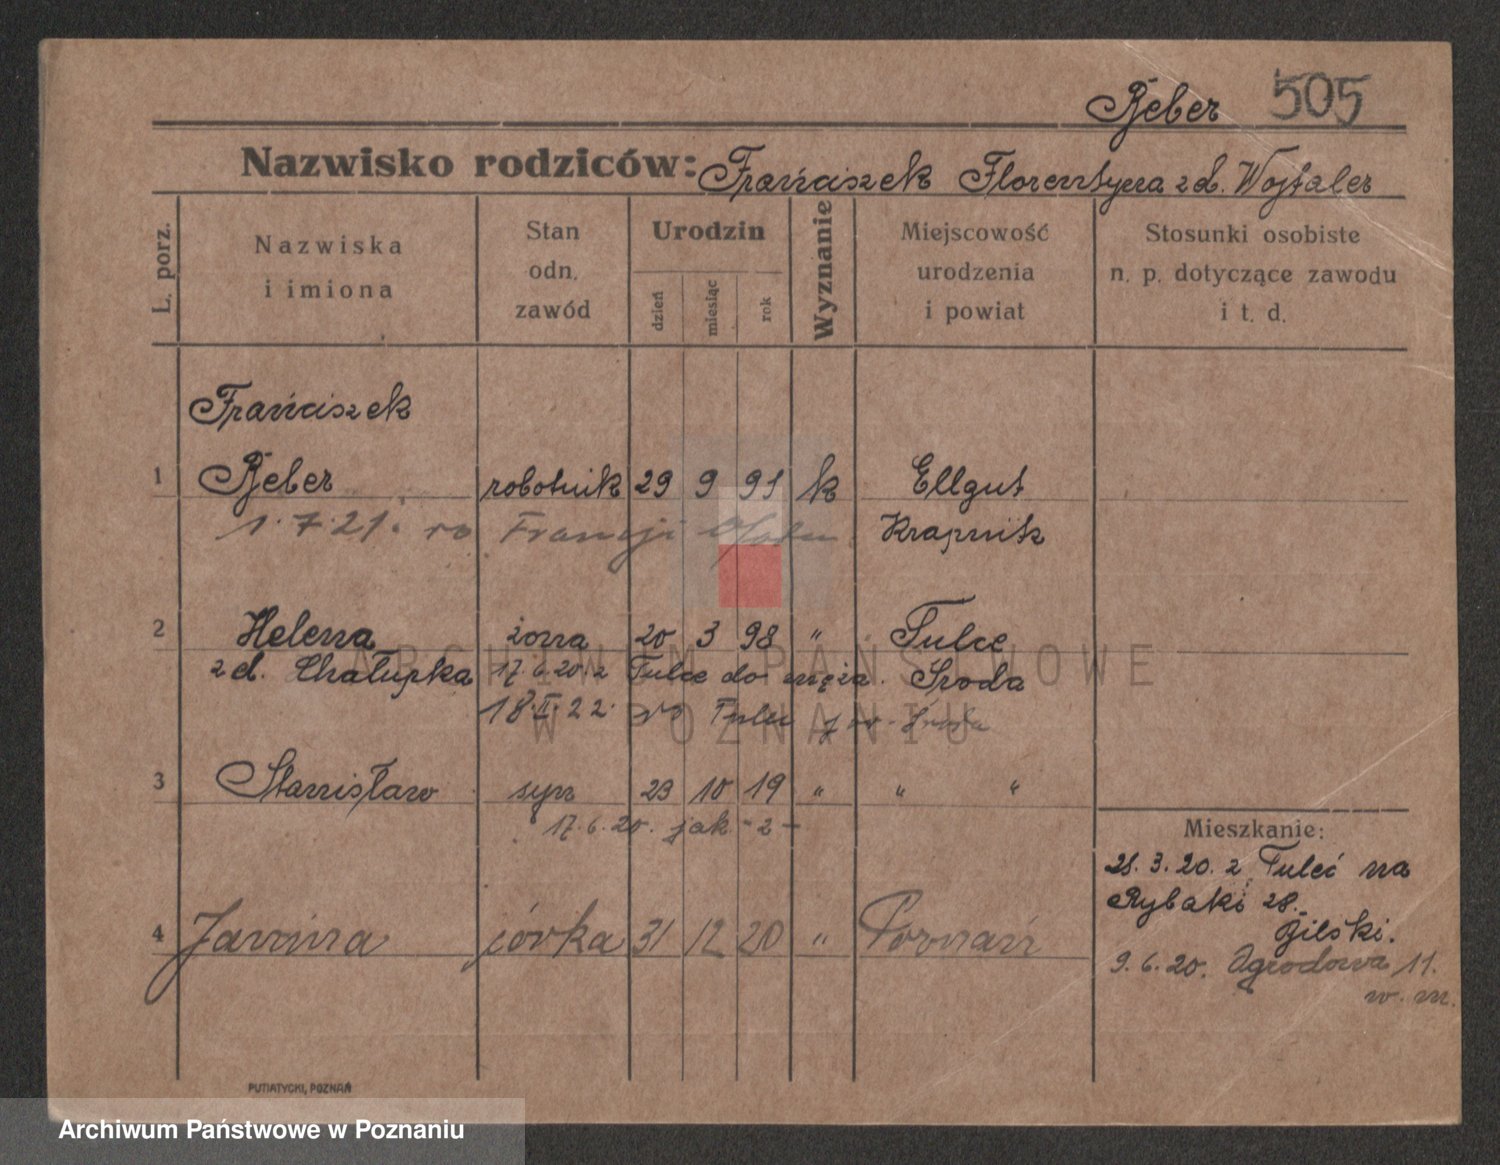 Reber 505
Nazwisko rodziców: Franciszek Florentyna z d. Wojtaler
L. porz.
Nazwiska i imiona
Stan odn. zawód
Urodzin
dzień miesiąc rok
Wyznanie
Miejscowość urodzenia i powiat
Stosunki osobiste n. p. dotyczące zawodu i t. d.
Franciszek
1 Reber robotnik 29 9 91 k Ellgut
1.7.21. Francji Krapnik
2 Helena żona 20 3 98 " Tulce
z d. Chałupka 17.6.20. z Tulce do męża. Środa
18.II.22. Tulce
3 Stanisław syn 23 10 19 " " "
17.6.20. jak -2-
Mieszkanie:
28.3.20. z Tulec na
Rybaki 28.
4 Janina córka 31 12 20 " Poznań
Gilski.
9.6.20. Ogrodowa 11.
w. m.
PUTIATYCKI, POZNAŃ
ARCHIWUM PAŃSTWOWE
W POZNANIU
Archiwum Państwowe w Poznaniu